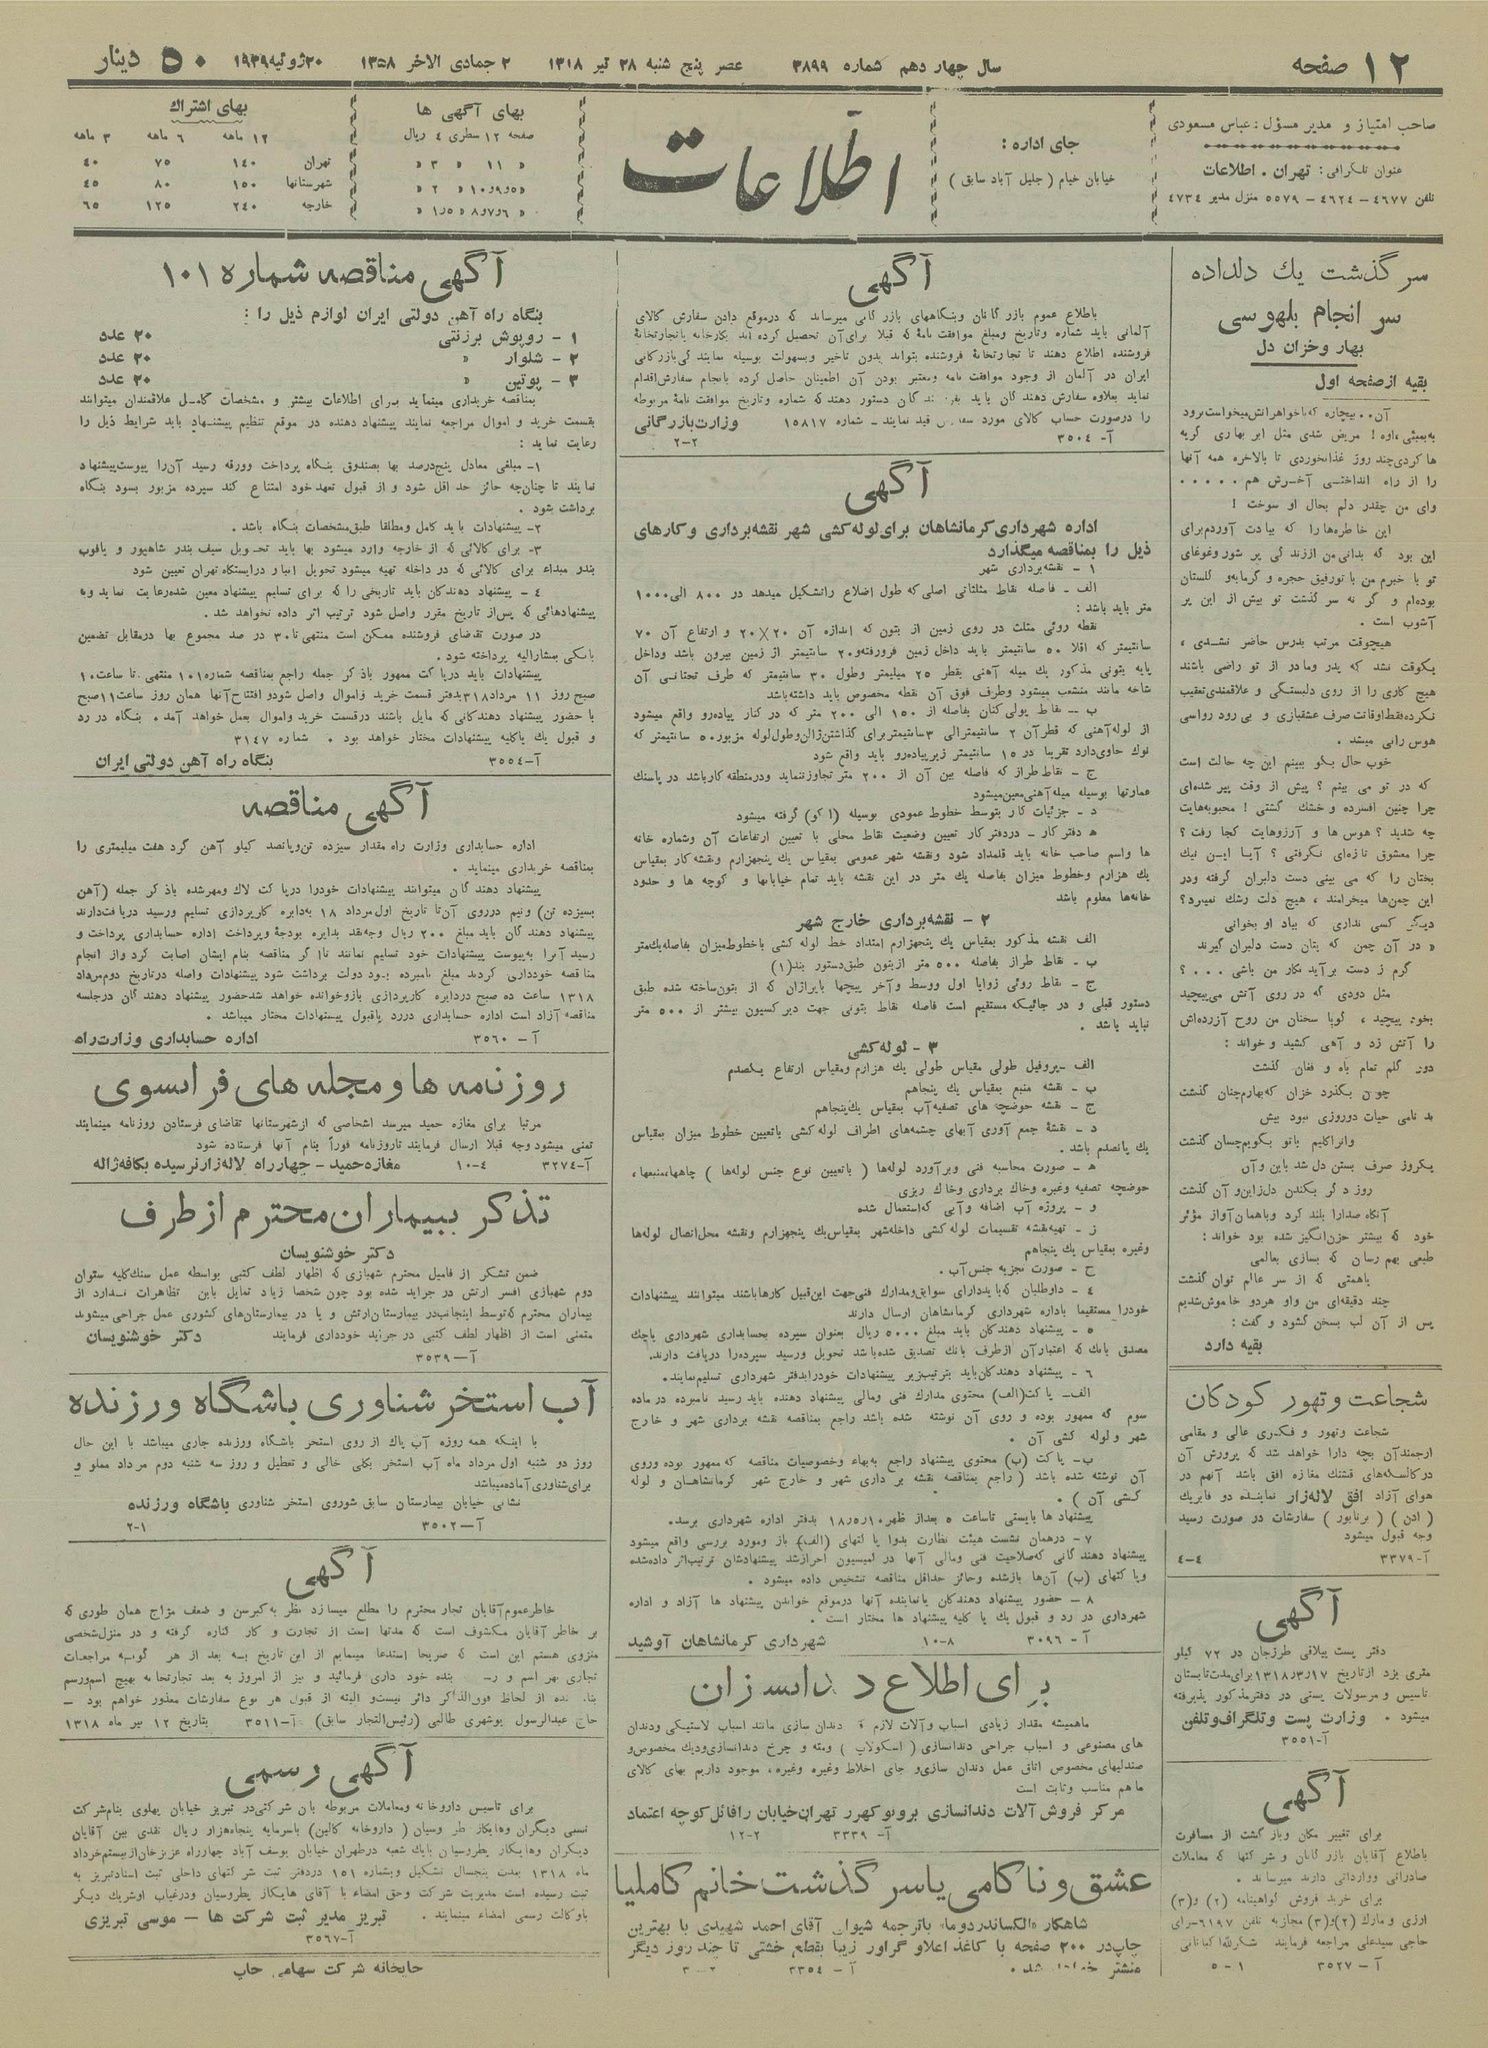 ۱۲ صفحه
سال چهاردهم شماره ۳۸۹۹
عصر پنج شنبه ۲۸ تیر ۱۳۱۸
۲ جمادی الاخر ۱۳۵۸
۲۰ ژوئیه ۱۹۳۹
۵۰ دینار
صاحب امتیاز و مدیر مسؤل: عباس مسعودی
عنوان تلگرافی: تهران . اطلاعات
تلفن ۴۶۷۷ - ۴۶۲۴ - ۵۵۷۹ منزل مدیر ۴۷۳۴
جای اداره :
خیابان خیام ( جلیل آباد سابق )
اطلاعات
بهای آگهی ها
صفحه ۱۲ سطری ۴ ریال
« ۱۱ « ۳ «
بهای اشتراك
۱۲ ماهه ۶ ماهه ۳ ماهه
تهران ۱۴۰ ۷۵ ۴۰
شهرستانها ۱۵۰ ۸۰ ۴۵
خارجه ۲۴۰ ۱۲۵ ۶۵
سرگذشت یك دلداده
سر انجام بلهوسی
بهار وخزان دل
بقیه از صفحه اول
ها کردی چند روز غذا نخوردی تا بالاخره همه آنها
را از راه انداختی آخرش هم . . . . .
وای من چقدر دلم بحال او سوخت !
این خاطره‌ها را که بیادت آوردم برای
این بود که بدانی من از زندگی پر شور وغوغای
تو با خبرم من با تو رفیق حجره و گرمابه و گلستان
بوده‌ام و گر نه سر گذشت تو بیش از این پر
آشوب است .
هیچوقت مرتب بدرس حاضر نشدی ،
یکوقت نشد که پدر ومادر از تو راضی باشند
هیچ کاری را از روی دلبستگی و علاقمندی تعقیب
نکرده فقط اوقاتت صرف عشقبازی و بی رود رواسی
هوس رانی میشد .
خوب حال بگو ببینم این چه حالت است
که در تو می بینم ؟ پیش از وقت پیر شده‌ای
چرا چنین افسرده و خشك گشتی ! محبوبه‌هایت
چه شدید ؟ هوس ها و آرزوهایت کجا رفت ؟
چرا معشوق تازه‌ای نگرفتی ؟ آیا این نیك
بختان را که می بینی دست دلبران گرفته ودر
این چمن‌ها میخرامند ، هیچ دلت رشك نمیبرد؟
دیگر کسی نداری که بیاد او بخوانی
« در آن چمن که بتان دست دلبران گیرند
گرم ز دست برآید نگار من باشی . . . ؟
مثل دودی که در روی آتش می‌پیچید
بخود پیچید ، گویا سخنان من روح آزرده‌اش
را آتش زد و آهی کشید و خواند :
دور گلم تمام باه و فغان گذشت
چون بگذرد خزان که بهارم چنان گذشت
بد نامی حیات دوروزی نبود بیش
وانرا کلیم باتو بگویم چسان گذشت
یکروز صرف بستن دل شد باین وآن
روز دگر بکندن دل زاین و آن گذشت
آنگاه صدارا بلند کرد وباهمان آواز مؤثر
خود که بیشتر حزن‌انگیز شده بود خواند :
طبعی بهم رسان که بسازی بعالمی
باهمتی که از سر عالم توان گذشت
چند دقیقه‌ای من واو هردو خاموش شدیم
پس از آن لب بسخن گشود و گفت :
بقیه دارد
شجاعت و تهور کودکان
شجاعت وتهور و فکری عالی و مقامی
ارجمند آن بچه دارا خواهد شد که پرورش آن
در کالسکه‌های قشنك مغازه افق باشد آنهم در
هوای آزاد افق لاله‌زار نماینده دو فابریك
( ادن ) ( برنابور ) سفارشات در صورت رسید
وجه قبول میشود
آ-۳۳۷۹ ۴-۴
آگهی
دفتر پست ییلاقی طرزجان در ۷۲ کیلو
متری یزد از تاریخ ۱۳۱۸٫۳٫۱۷ برای مدت تابستان
تاسیس و مرسولات پستی در دفتر مذکور پذیرفته
میشود . وزارت پست و تلگراف و تلفن
آ-۳۵۵۱
آگهی
برای تغییر مکان وباز گشت از مسافرت
باطلاع آقایان بازر گانان و شر کتها که معاملات
صادراتی ووارداتی دارند میرساند .
برای خرید فروش گواهینامه (۲) و(۳)
حاجی سیدعلی مراجعه فرمایند
آ - ۳۵۲۷ ۱-۵
آگهی
باطلاع عموم بازر گانان وبنگاههای بازر گانی میرساند که درموقع دادن سفارش کالای
آلمانی باید شماره وتاریخ ومبلغ موافقت نامهٔ که قبلا برای آن تحصیل کرده‌اند بکارخانه یا تجارتخانهٔ
فروشنده اطلاع دهند تا تجارتخانهٔ فروشنده بتواند بدون تاخیر وبسهولت بوسیله نمایندگی بازرگانی
ایران در آلمان از وجود موافقت نامه ومعتبر بودن آن اطمینان حاصل کرده بانجام سفارش اقدام
نماید بعلاوه سفارش دهند گان باید بفروشند گان دستور دهند که شماره و تاریخ موافقت نامهٔ مربوطه
را درصورت حساب کالای مورد سفارش قید نمایند - شماره ۱۵۸۱۷ وزارت بازرگانی
آ- ۳۵۰۴ ۲-۲
آگهی
اداره شهرداری کرمانشاهان برای لوله کشی شهر نقشه برداری و کارهای
ذیل را بمناقصه میگذارد
۱ - نقشه برداری شهر
الف - فاصله نقاط مثلثاتی اصلی که طول اضلاع را تشکیل میدهد در ۸۰۰ الی ۱۰۰۰
متر باید باشد :
نقطه روئی مثلث در روی زمین از بتون که اندازه آن ۲۰×۲۰ و ارتفاع آن ۷۰
سانتیمتر که اقلا ۵۰ سانتیمتر باید داخل زمین فرورفته و ۲۰ سانتیمتر از زمین بیرون باشد وداخل
پایه بتونی مذکور یك میله آهنی بقطر ۲۵ میلیمتر وطول ۳۰ سانتیمتر که طرف تحتانی آن
شاخه مانند منشعب میشود وطرف فوق آن نقطه مخصوص باید داشته باشد
ب - نقاط پولی گنان بفاصله از ۱۵۰ الی ۲۰۰ متر که در کنار پیاده‌رو واقع میشود
از لوله آهنی که قطر آن ۲ سانتیمتر الی ۳ سانتیمتر برای گذاشتن ژالن وطول لوله مزبور ۵۰ سانتیمتر که
نوك حاوی دارد تقریبا در ۱۵ سانتیمتر زیر پیاده‌رو باید واقع شود
ج - نقاط طراز که فاصله بین آن از ۲۰۰ متر تجاوز ننماید ودر منطقه کار باشد در پاسنك
عمارتها بوسیله میله آهنی معین میشود
د - جزئیات کار بتوسط خطوط عمودی بوسیله (اکو) گرفته میشود
ه دفتر کار - دردفتر کار تعیین وضعیت نقاط محلی با تعیین ارتفاعات آن وشماره خانه
ها واسم صاحب خانه باید قلمداد شود ونقشه شهر عمومی بمقیاس یك پنجهزارم ونقشه کار بمقیاس
یك هزارم وخطوط میزان بفاصله یك متر در این نقشه باید تمام خیابانها و کوچه ها و حدود
خانه‌ها معلوم باشد
۲ - نقشه برداری خارج شهر
الف نقشه مذکور بمقیاس یك پنجهزارم امتداد خط لوله کشی با خطوط میزان بفاصله یك متر
ب - نقاط طراز بفاصله ۵۰۰ متر از بتون طبق دستور بند(۱)
ج - نقاط روئی زوایا اول ووسط وآخر پیچها یابراژان که از بتون ساخته شده طبق
دستور قبلی و در جائیکه مستقیم است فاصله نقاط بتونی جهت دیرکسیون بیشتر از ۵۰۰ متر
نباید باشد .
۳ - لوله کشی
الف - پروفیل طولی مقیاس طولی یك هزارم ومقیاس ارتفاع یکصدم
ب - نقشه منبع بمقیاس یك پنجاهم
ج - نقشه حوضچه های تصفیه آب بمقیاس یك پنجاهم
د - نقشهٔ جمع آوری آبهای چشمه‌های اطراف لوله کشی باتعیین خطوط میزان بمقیاس
یك پانصدم باشد .
ه - صورت محاسبه فنی وبرآورد لوله‌ها ( باتعیین نوع جنس لوله‌ها ) چاهها،منبعها،
حوضچه تصفیه وغیره وخاك برداری وخاك ریزی
و - پروژه آب اضافه و آبی که استعمال شده
ز - تهیه نقشه تقسیمات لوله کشی داخله شهر بمقیاس یك پنجهزارم ونقشه محل اتصال لوله‌ها
وغیره بمقیاس یك پنجاهم
ح - صورت تجزیه جنس آب .
۴ - داوطلبان که باید دارای سوابق ومدارك فنی جهت این قبیل کارها باشند میتوانند پیشنهادات
خودرا مستقیما باداره شهرداری کرمانشاهان ارسال دارند
۵ - پیشنهاد دهندگان باید مبلغ ۵۰۰۰ ریال بعنوان سپرده بحسابداری شهرداری یا چك
مصدق بانك که اعتبار آن از طرف بانك تصدیق شده باشد تحویل ورسید سپرده را دریافت دارند.
۶ - پیشنهاد دهندگان باید بترتیب زیر پیشنهادات خودرا بدفتر شهرداری تسلیم نمایند.
الف- پاکت(الف) محتوی مدارك فنی ومالی پیشنهاد دهنده باید رسید نامبرده در ماده
سوم که ممهور بوده و روی آن نوشته شده باشد راجع بمناقصه نقشه برداری شهر و خارج
شهر ولوله کشی آن .
ب- پاکت (ب) محتوی پیشنهاد راجع به بهاء وخصوصیات مناقصه که ممهور بوده وروی
آن نوشته شده باشد ( راجع بمناقصه نقشه بر داری شهر و خارج شهر کرمانشاهان و لوله
کشی آن ) .
پیشنهاد ها بایستی تا ساعت ۵ بعداز ظهر ۱۸٫۵٫۱۰ بدفتر اداره شهرداری برسد.
۷ - درهمان نشست هیئت نظارت بدوا پا کتهای (الف) باز ومورد بررسی واقع میشود
پیشنهاد دهند گانی که صلاحیت فنی ومالی آنها در کمیسیون احراز شد پیشنهادشان ترتیب‌اثر داده شده
وپاکتهای (ب) آن‌ها باز شده وحائز حداقل مناقصه تشخیص داده میشود .
۸ - حضور پیشنهاد دهندگان یا نماینده آنها درموقع خواندن پیشنهاد ها آزاد و اداره
شهرداری در رد و قبول یك یا کلیه پیشنهاد ها مختار است .
آ - ۳۰۹۶ ۸-۱۰ شهرداری کرمانشاهان آوشید
برای اطلاع دندانسازان
ماهمیشه مقدار زیادی اسباب وآلات لازمه دندان سازی مانند اسباب لاستیکی ودندان
های مصنوعی و اسباب جراحی دندانسازی ( اسکولاپ ) ومته و چرخ دندانسازی ودیك مخصوص و
صندلیهای مخصوص اتاق عمل دندان سازی و جای اخلاط وغیره وغیره، موجود داریم بهای کالای
ما هم مناسب وثابت است
مرکز فروش آلات دندانسازی برونو کهرر تهران خیابان رافائل کوچه اعتماد
آ- ۳۳۳۹ ۲-۱۲
عشق و ناکامی یا سرگذشت خانم کاملیا
شاهکار «الکساندردوما» باترجمه شیوای آقای احمد شهیدی با بهترین
چاپ در ۲۰۰ صفحه با کاغذ اعلا و گراور زیبا بقطع خشتی تا چند روز دیگر
منتشر خواهد شد .
آ - ۳۳۵۴ ۲-۳
آگهی مناقصه شماره ۱۰۱
بنگاه راه آهن دولتی ایران لوازم ذیل را :
۱ - روپوش برزنتی ۲۰ عدد
۲ - شلوار « ۲۰ عدد
۳ - پوتین « ۲۰ عدد
بمناقصه خریداری مینماید برای اطلاعات بیشتر و مشخصات کامل علاقمندان میتوانند
بقسمت خرید و اموال مراجعه نمایند پیشنهاد دهنده در موقع تنظیم پیشنهاد باید شرایط ذیل را
رعایت نماید :
۱- مبلغی معادل پنج‌درصد بها بصندوق بنگاه پرداخت وورقه رسید آن‌را پیوست پیشنهاد
نمایند تا چنان‌چه حائز حد اقل شود و از قبول تعهد خود امتناع کند سپرده مزبور بسود بنگاه
برداشت شود .
۲- پیشنهادات باید کامل ومطلقا طبق مشخصات بنگاه باشد .
۳- برای کالائی که از خارجه وارد میشود بها باید تحویل سیف بندر شاهپور و یافوب
بندر مبداء برای کالائی که در داخله تهیه میشود تحویل انبار درایستگاه تهران تعیین شود
۴ - پیشنهاد دهندگان باید تاریخی را که برای تسلیم پیشنهاد معین شده رعایت نماید وبه
پیشنهادهائی که پس‌از تاریخ مقرر واصل شود ترتیب اثر داده نخواهد شد .
در صورت تقاضای فروشنده ممکن است منتهی تا ۳۰ در صد مجموع بها درمقابل تضمین
بانکی بمشارالیه پرداخته شود .
پیشنهادات باید درپاکت ممهور باذکر جمله راجع بمناقصه شماره ۱۰۱ منتهی تا ساعت ۱۰
صبح روز ۱۱ مرداد ۳۱۸ بدفتر قسمت خرید و اموال واصل شود و افتتاح آنها همان روز ساعت ۱۱ صبح
با حضور پیشنهاد دهندگانی که مایل باشند درقسمت خرید واموال بعمل خواهد آمد . بنگاه در رد
و قبول یك یا کلیه پیشنهادات مختار خواهد بود . شماره ۳۱۴۷
آ-۳۵۵۴ بنگاه راه آهن دولتی ایران
آگهی مناقصه
اداره حسابداری وزارت راه مقدار سیزده تن و پانصد کیلو آهن گرد هفت میلیمتری را
بمناقصه خریداری مینماید .
پیشنهاد دهند گان میتوانند پیشنهادات خودرا درپاکت لاك ومهر شده باذکر جمله (آهن
سیزده تن) ونیم درروی آن تا تاریخ اول مرداد ۱۸ به‌دایره کارپردازی تسلیم ورسید دریافت‌دارند
پیشنهاد دهند گان باید مبلغ ۲۰۰ ریال وجه نقد بدایره بودجهٔ وپرداخت اداره حسابداری پرداخت و
رسید آنرا به پیوست پیشنهادات خود تسلیم نمایند تا اگر مناقصه بنام ایشان اصابت کرد واز انجام
مناقصه خودداری کردند مبلغ نامبرده بسود دولت برداشت شود پیشنهادات واصله درتاریخ دوم مرداد
۱۳۱۸ ساعت ده صبح دردایره کارپردازی باز وخوانده خواهد شد حضور پیشنهاد دهند گان درجلسه
مناقصه آزاد است اداره حسابداری دررد یاقبول پیشنهادات مختار میباشد .
آ - ۳۵۶۰ اداره حسابداری وزارت راه
روزنامه ها و مجله های فرانسوی
مرتبا برای مغازه حمید میرسد اشخاصی که از شهرستانها تقاضای فرستادن روزنامه مینمایند
تمنی میشود وجه قبلا ارسال فرمایند تا روزنامه فوراً بنام آنها فرستاده شود
آ-۳۲۷۴ ۴-۱۰ مغازه حمید - چهار راه لاله‌زار نرسیده بکافه ژاله
تذکر ببیماران محترم از طرف
دکتر خوشنویسان
ضمن تشکر از فامیل محترم شهبازی که اظهار لطف کتبی بواسطه عمل سنك کلیه ستوان
دوم شهبازی افسر ارتش در جراید شده بود چون شخصا زیاد تمایل باین تظاهرات ندارد از
بیماران محترم که توسط اینجانب در بیمارستان ارتش و یا در بیمارستان‌های کشوری عمل جراحی میشوند
متمنی است از اظهار لطف کتبی در جراید خودداری فرمایند دکتر خوشنویسان
آ-۳۵۳۹
آب استخر شناوری باشگاه ورزنده
با اینکه همه روزه آب پاك از روی استخر باشگاه ورزنده جاری میباشد با این حال
روز دو شنبه اول مرداد ماه آب استخر بکلی خالی و تعطیل و روز سه شنبه دوم مرداد مملو و
برای شناوری آماده میباشد
نشانی خیابان بیمارستان سابق شوروی استخر شناوری باشگاه ورزنده
آ-۳۵۰۲ ۱-۲
آگهی
خاطر عموم آقایان تجار محترم را مطلع میسازد نظر به کبرسن و ضعف مزاج همان طوری که
بر خاطر آقایان مکشوف است که مدتها است از تجارت و کار کناره گرفته و در منزل شخصی
منزوی هستم این است که صریحا استدعا مینمایم از این تاریخ به بعد از هر گونه مراجعات
تجاری بهر اسم و رسم بنده خود داری فرمائید و نیز از امروز به بعد تجارتخانه بهیچ اسم ورسم
بنام بنده از لحاظ فوق‌الذکر دائر نیست و البته از قبول هر نوع سفارشات معذور خواهم بود -
حاج عبدالرسول بوشهری طالبی (رئیس التجار سابق) آ-۳۵۱۱ بتاریخ ۱۲ تیر ماه ۱۳۱۸
آگهی رسمی
برای تاسیس داروخانه ومعاملات مربوطه بان شرکتی در تبریز خیابان پهلوی بنام شرکت
نسبی دیگران وهایکاز پطروسیان ( داروخانه کالین) باسرمایه پنجاه‌هزار ریال نقدی بین آقایان
دیگران وهایکاز پطروسیان بایك شعبه درطهران خیابان یوسف آباد چهارراه عزیزخان از بیستم خرداد
ماه ۱۳۱۸ بمدت پنجسال تشکیل وبشماره ۱۵۱ دردفتر ثبت شرکتهای داخلی ثبت اسناد تبریز به
ثبت رسیده است مدیریت شرکت وحق امضاء با آقای هایکاز پطروسیان ودرغیاب اوشریك دیگر
باوکالت رسمی امضاء مینمایند . تبریز مدیر ثبت شرکت ها - موسی تبریزی
آ-۳۵۶۷
چاپخانه شرکت سهامی چاپ